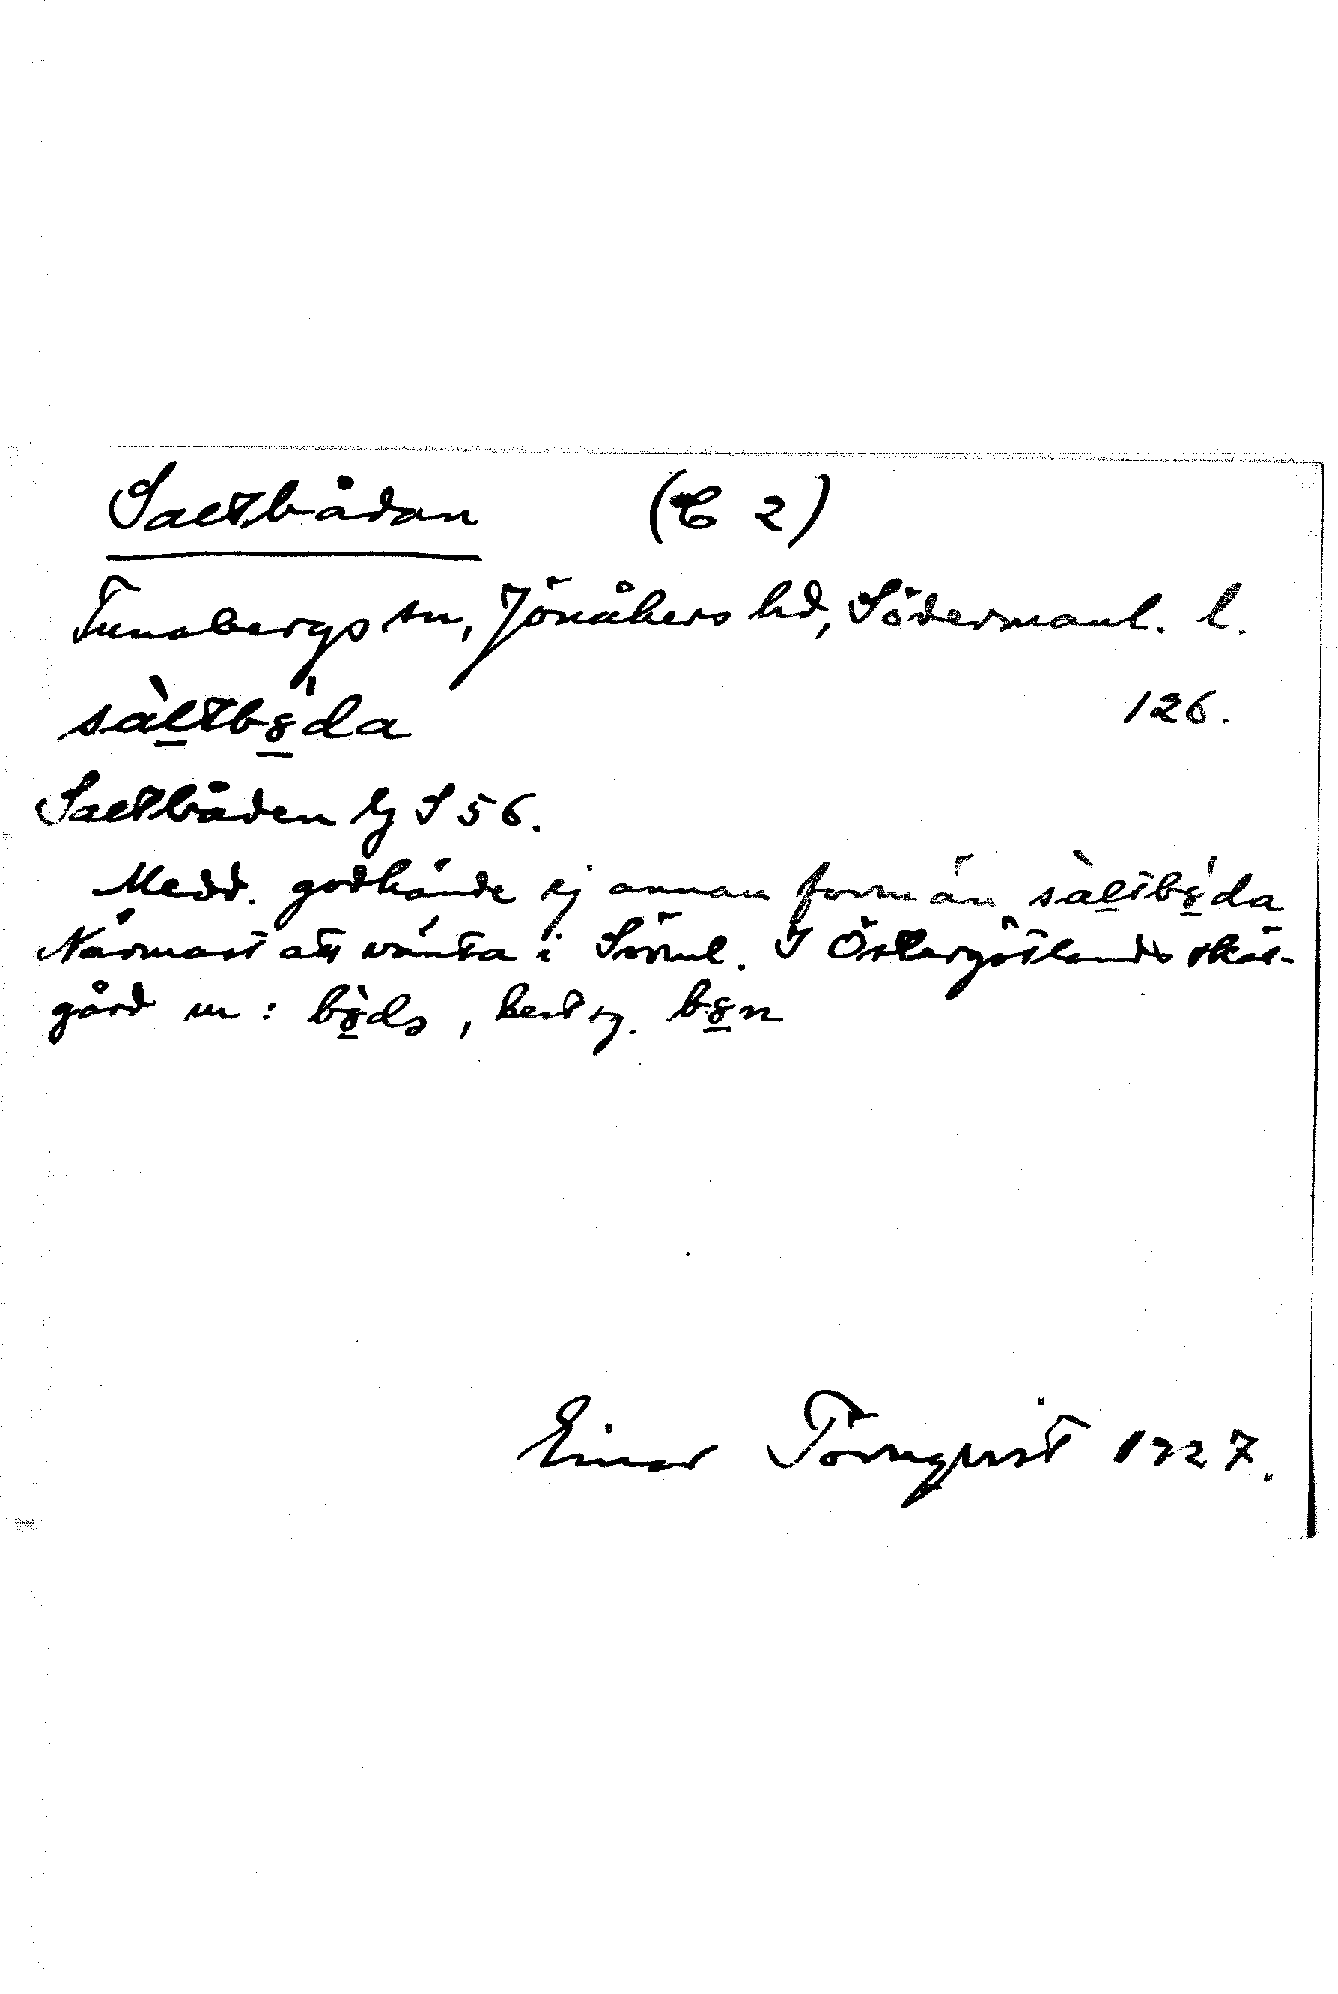 Saltbådan (C 2)
Tunabergs sn, Jönåkers hd, Södermanl. l.
sàl̲tb8̲́da 126.
Saltbåden Sj S 56.
Medd. godkände ej annan form än sàl̲tb8̲́da
Närmast att vänta i Sörml. I Östergötlands skär-
gård m: b8̲̀da, best sg. b8̲n
Einar Törnqvist 1927.